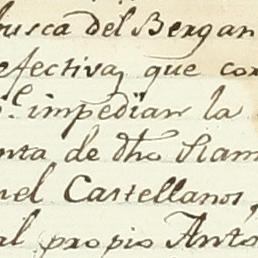 busca del Bergan
efectiva, que con
impedian la
nta de dho Ram
nel Castellanos,
al propio Anto